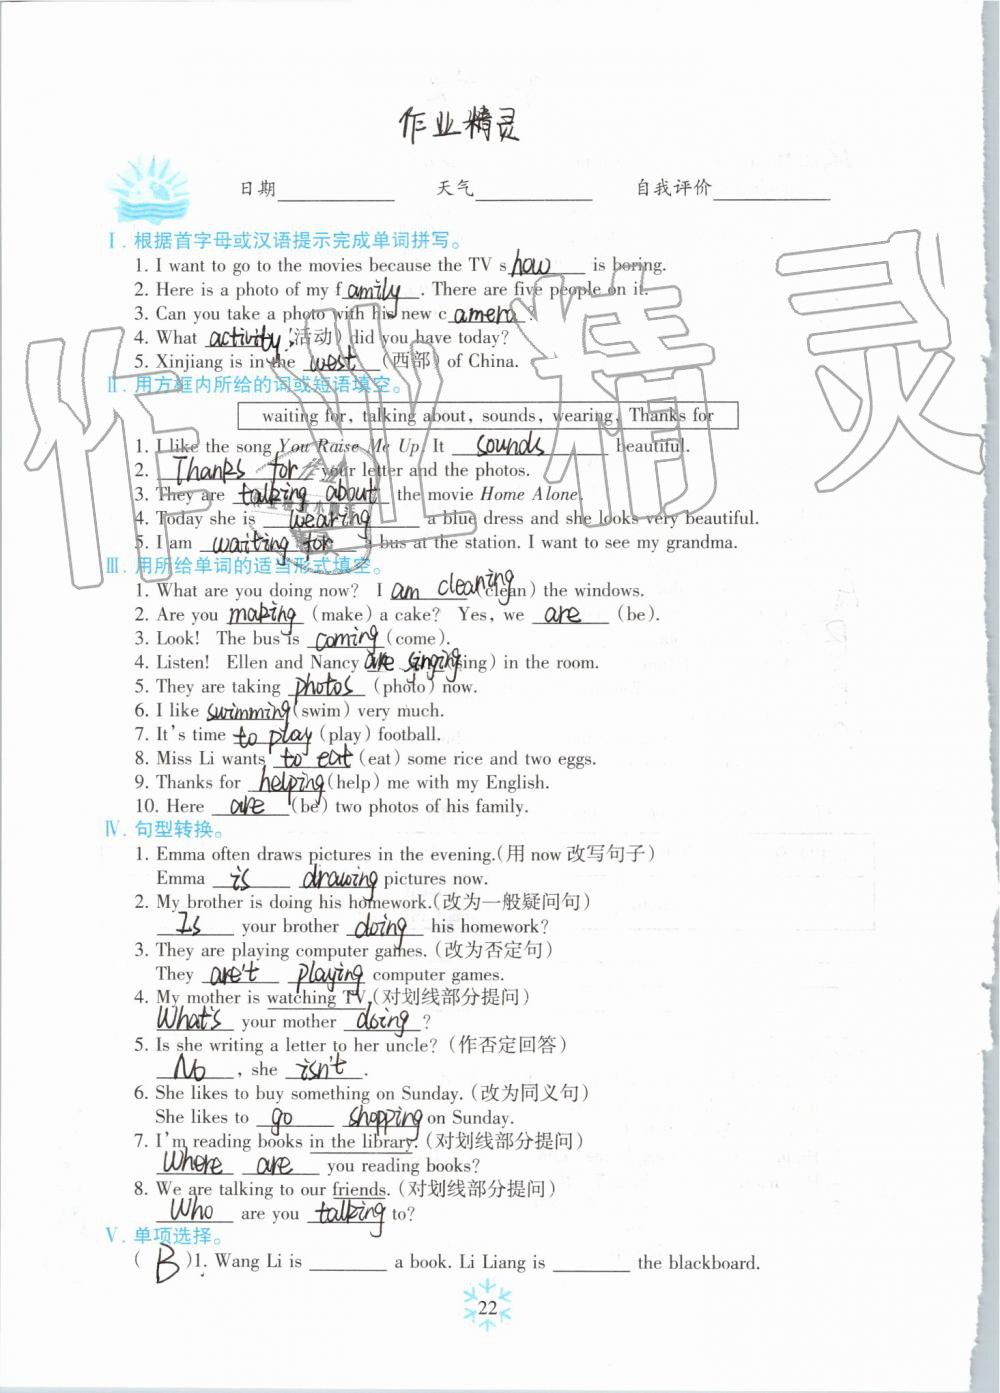 作业精灵
日期 天气 自我评价
Ⅰ. 根据首字母或汉语提示完成单词拼写。
1. I want to go to the movies because the TV show is boring.
2. Here is a photo of my family. There are five people on it.
3. Can you take a photo with his new camera?
4. What activity (活动) did you have today?
5. Xinjiang is in the west (西部) of China.
Ⅱ. 用方框内所给的词或短语填空。
waiting for, talking about, sounds, wearing, Thanks for
1. I like the song You Raise Me Up. It sounds beautiful.
2. Thanks for your letter and the photos.
3. They are talking about the movie Home Alone.
4. Today she is wearing a blue dress and she looks very beautiful.
5. I am waiting for a bus at the station. I want to see my grandma.
Ⅲ. 用所给单词的适当形式填空。
1. What are you doing now? I am cleaning (clean) the windows.
2. Are you making (make) a cake? Yes, we are (be).
3. Look! The bus is coming (come).
4. Listen! Ellen and Nancy are singing (sing) in the room.
5. They are taking photos (photo) now.
6. I like swimming (swim) very much.
7. It's time to play (play) football.
8. Miss Li wants to eat (eat) some rice and two eggs.
9. Thanks for helping (help) me with my English.
10. Here are (be) two photos of his family.
Ⅳ. 句型转换。
1. Emma often draws pictures in the evening.(用 now 改写句子)
Emma is drawing pictures now.
2. My brother is doing his homework.(改为一般疑问句)
Is your brother doing his homework?
3. They are playing computer games. (改为否定句)
They aren't playing computer games.
4. My mother is watching TV.(对划线部分提问)
What's your mother doing ?
5. Is she writing a letter to her uncle? (作否定回答)
No , she isn't .
6. She likes to buy something on Sunday. (改为同义句)
She likes to go shopping on Sunday.
7. I'm reading books in the library. (对划线部分提问)
Where are you reading books?
8. We are talking to our friends. (对划线部分提问)
Who are you talking to?
Ⅴ. 单项选择。
( B )1. Wang Li is ________ a book. Li Liang is ________ the blackboard.
22
作业精灵